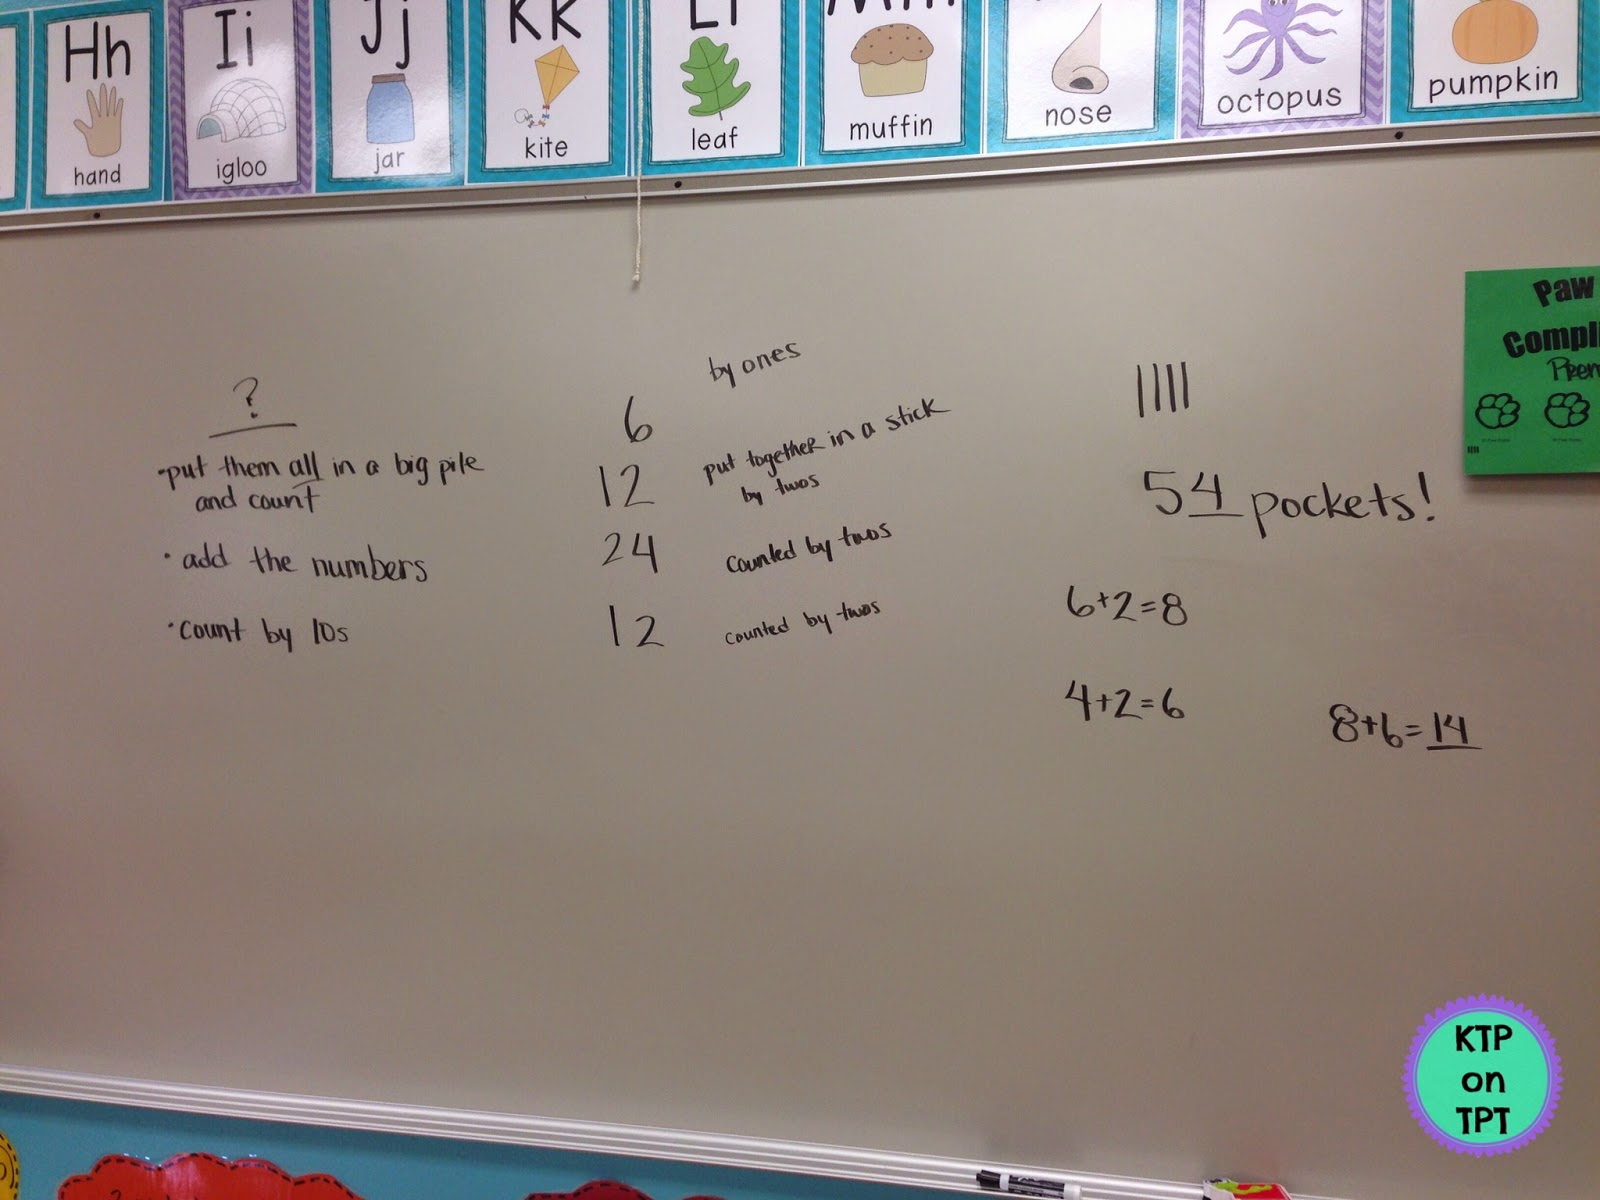 Hh
hand
Ii
igloo
Jj
jar
Kk
kite
Ll
leaf
muffin
nose
octopus
pumpkin
Paw
?
• put them all in a big pile
and count
• add the numbers
• count by 10s
6 by ones
12 put together in a stick
by twos
24 counted by twos
12 counted by twos
54 pockets!
6+2=8
4+2=6
8+6=14
KTP
on
TPT